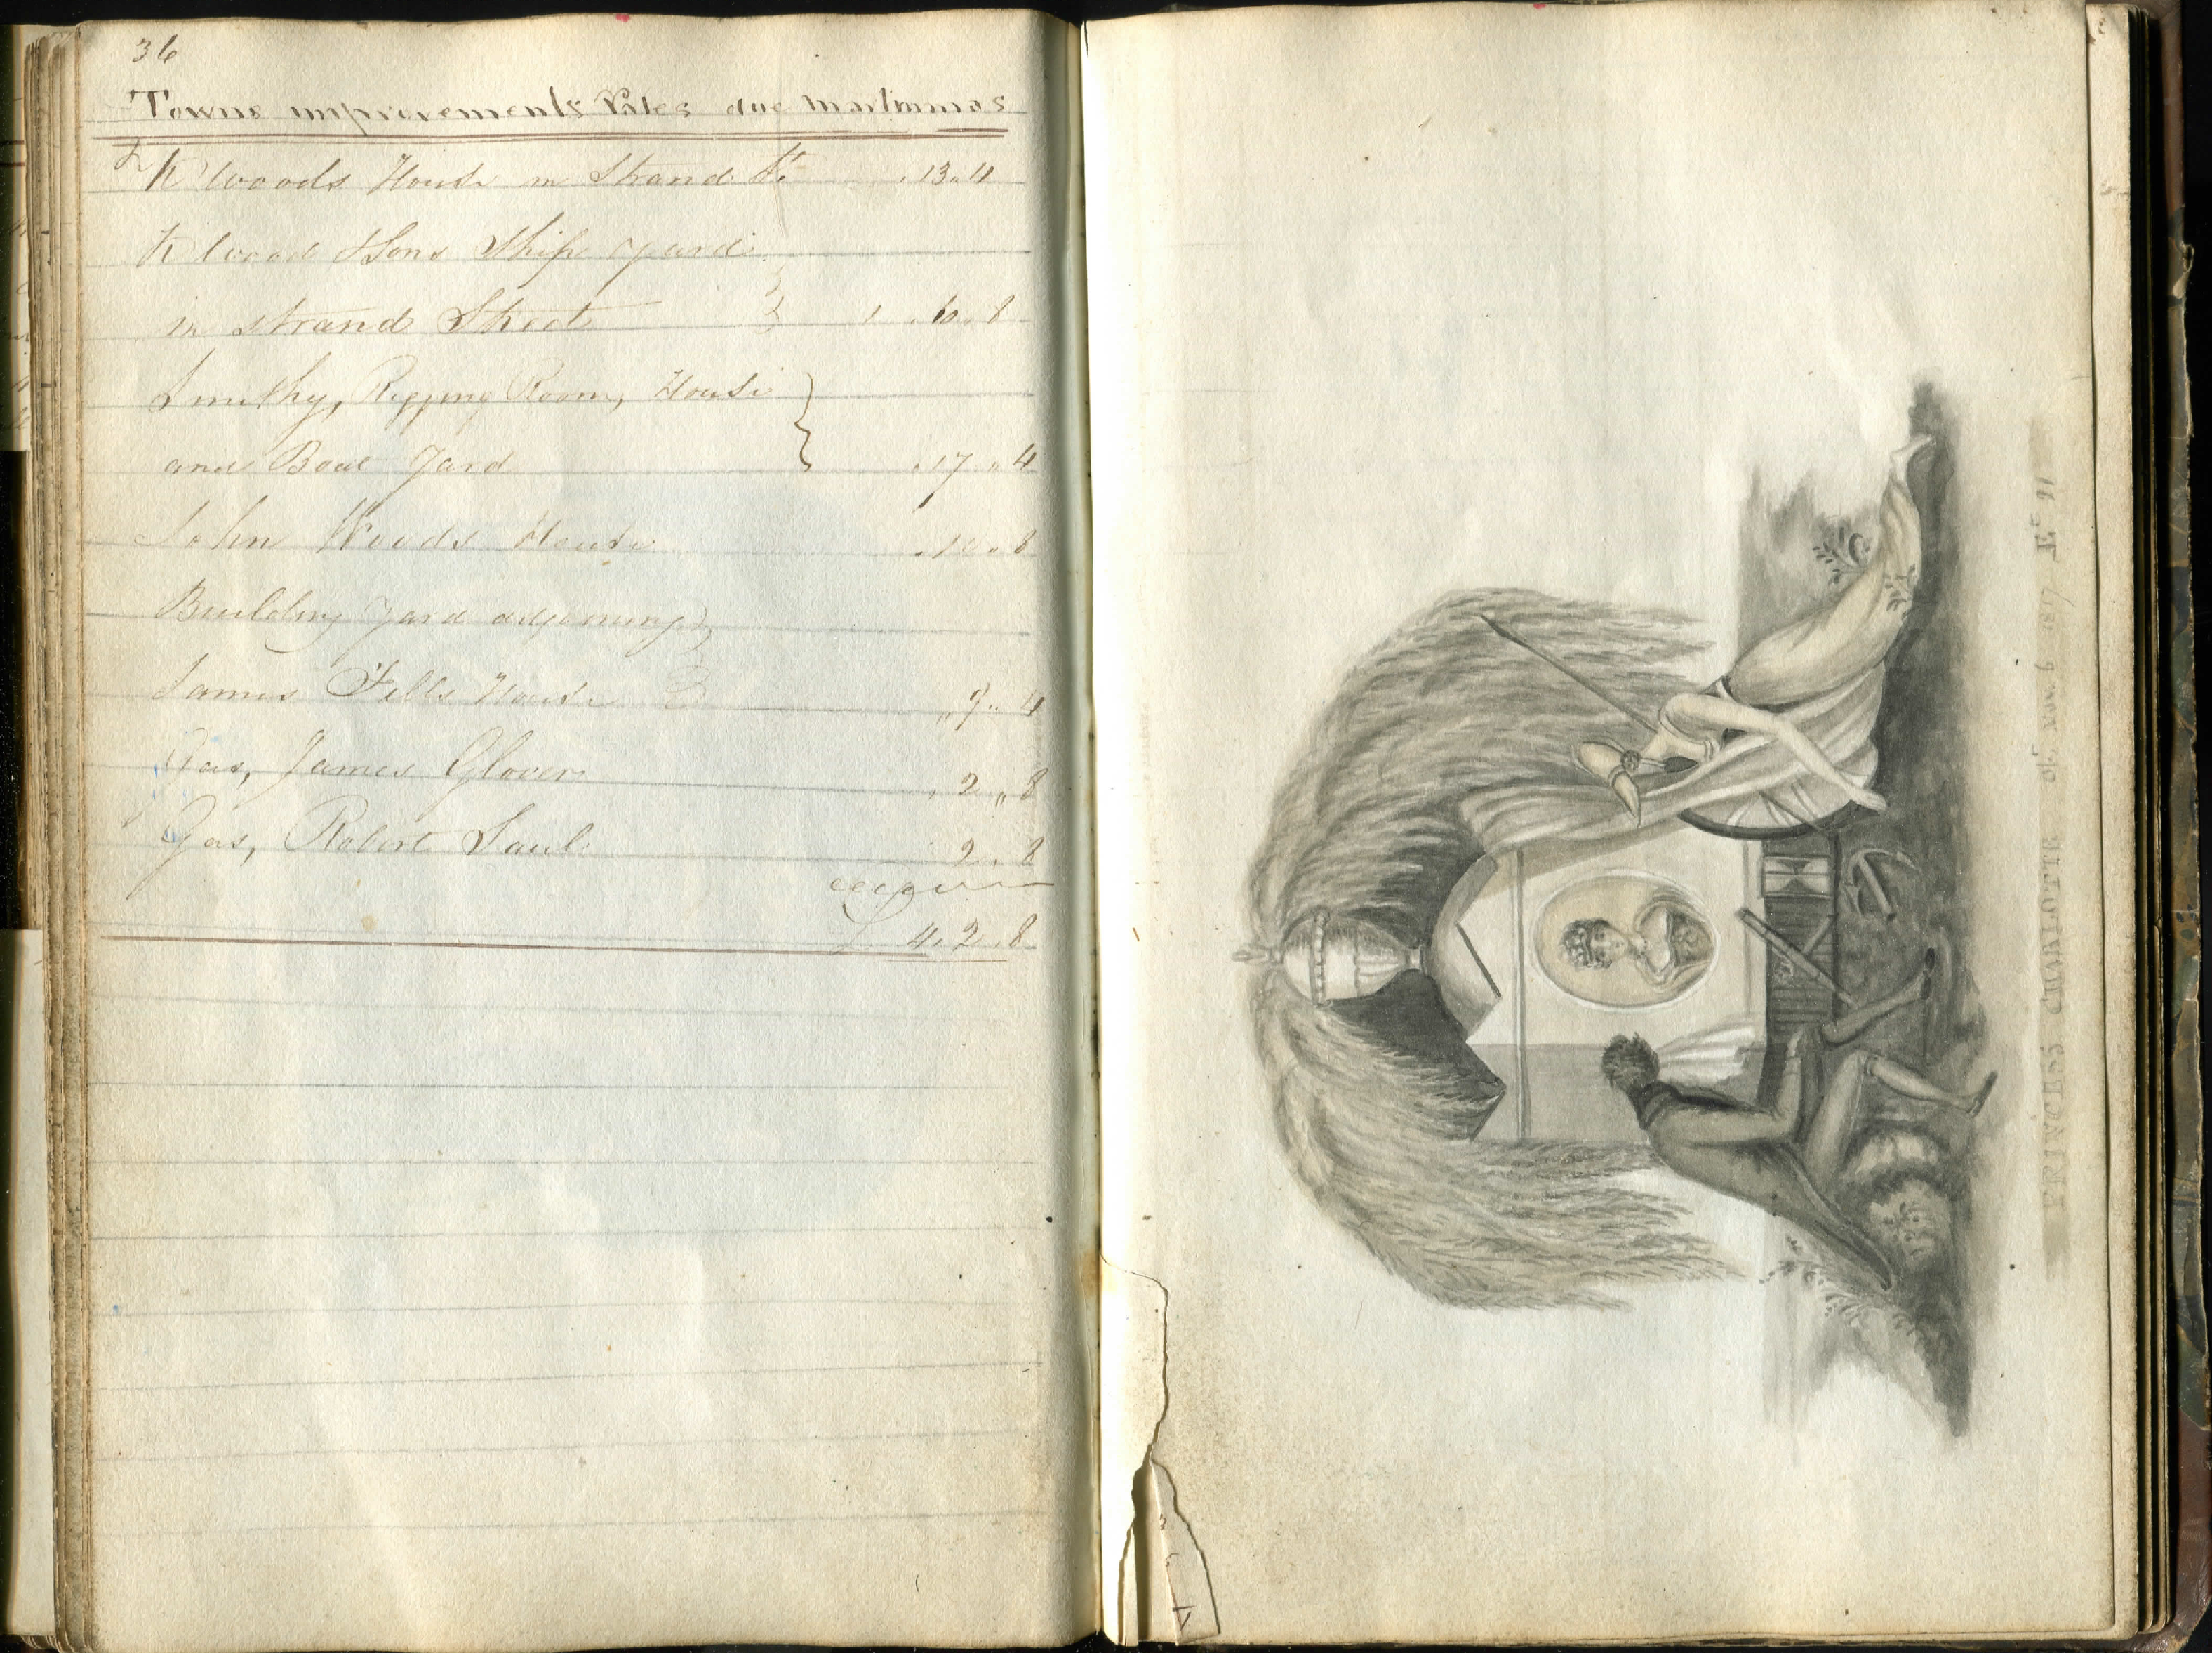 36
Towns improvements Rates due Martinmas
K Woods House in Strand St. . 13 . 4
K Wood & Sons Ship Yard
in Strand Street 1 . 6 . 8
Smithy, Rigging Room, House
and Boat Yard . 17 " 4
John Woods House . 10 " 8
Building Yard adjoining
James Fells House " 9 " 4
Gas, James Glover , 2 " 8
Gas, Robert Saul 2 . 8
£ 4 . 2 . 8
PRINCESS CHARLOTTE obt. Nov. 6 1817 Æ 21